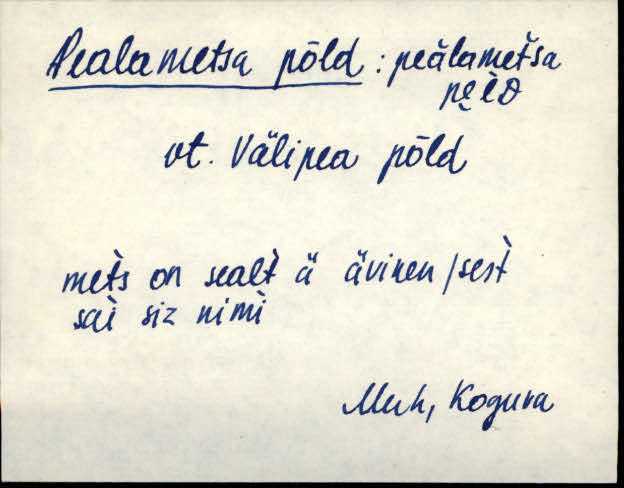 Pealametsa põld : peälameťsa
vt. Välipea põld
on sealt ä ävinen / sest
sai siz nimi
Muh, Koguva